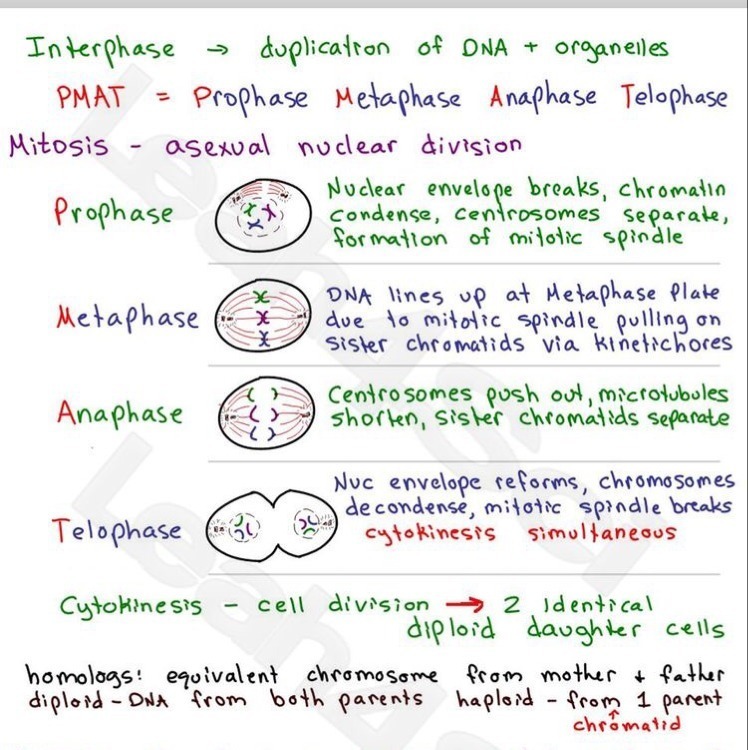 Interphase → duplication of DNA + organelles
PMAT = Prophase Metaphase Anaphase Telophase
Mitosis - asexual nuclear division
Prophase
Nuclear envelope breaks, chromatin
condense, centrosomes separate,
formation of mitotic spindle
Metaphase
DNA lines up at Metaphase Plate
due to mitotic spindle pulling on
sister chromatids via kinetichores
Anaphase
Centrosomes push out, microtubules
shorten, sister chromatids separate
Telophase
Nuc envelope reforms, chromosomes
decondense, mitotic spindle breaks
cytokinesis simultaneous
Cytokinesis - cell division → 2 Identical
diploid daughter cells
homologs: equivalent chromosome from mother + father
diploid - DNA from both parents haploid - from 1 parent
chromatid
Leah4Sci
Leah4Sci